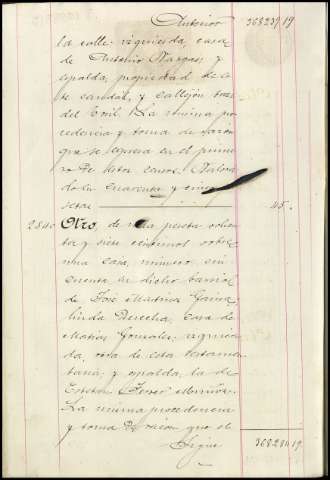 Anterior 368239 19
la calle: izquierda, casa
de Antonio Vargas y
espalda, propiedad de es-
te caudal, y callejón
del Civil. La misma pro
cedencia y toma de razón
que se expresa en el número
de este censo. Valora
do en cuarenta y cinco
setas 45.
2840 Otro, de una peseta ochen
ta y siete céntimos sobre
una casa, número cin
cuenta de dicho barrio
de José Medina
linda derecha, casa de
Matías Gonzalez: izquier
da, otra de esta testamen
taría; y espalda, la de
Esteban Ferrer
La misma procedencia
y toma de razón que se
Sigue 368284 19